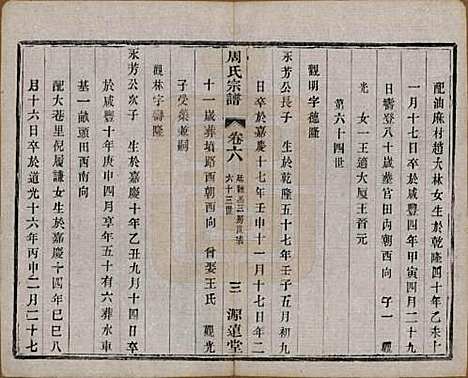 配油麻村趙大林女生於乾隆四十年乙未十
一月十七日卒於咸豐四年甲寅四月二十九
日壽登八十歲葬官田內朝西向 子一 觀
光 女一 王適大厦王晋元
第六十四世
觀明字德隆
永芳公長子 生於乾隆五十七年壬子五月初九
日卒於嘉慶十七年壬申十一月十七日年二
周氏宗譜
卷六
六十三世
三 源遠堂
十一歲葬墳路西朝西向 曾娶王氏 觀光
子受業兼嗣
觀林字壽隆
永芳公次子 生於嘉慶十年乙丑九月十四日卒
於咸豐十年庚申四月享年五十有六葬水車
基一畝頭田西南向
配大巷里倪履謙女生於嘉慶十四年己巳八
月十六日卒於道光十六年丙申二月二十七